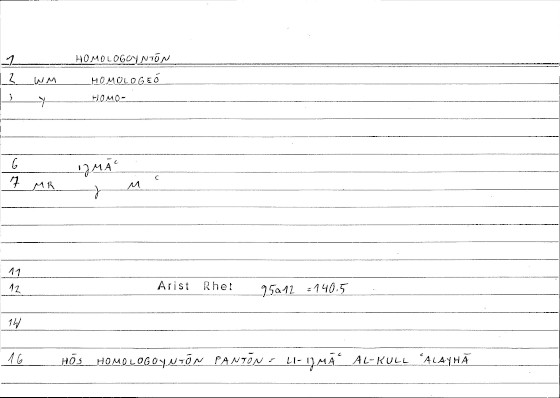 1 HOMOLOGOYNTŌN
2 WM HOMOLOGEŌ
3 Y HOMO-
6 IǧMĀʿ
7 MR ǧ M ʿ
11
12 Arist Rhet 95a12 = 140.5
14
16 HŌS HOMOLOGOYNTŌN PANTŌN = LI-IǧMĀʿ AL-KULL ʿALAYHĀ